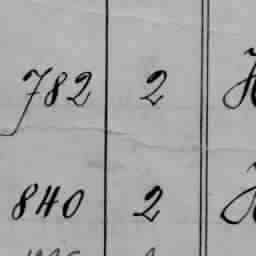 782 2
840 2